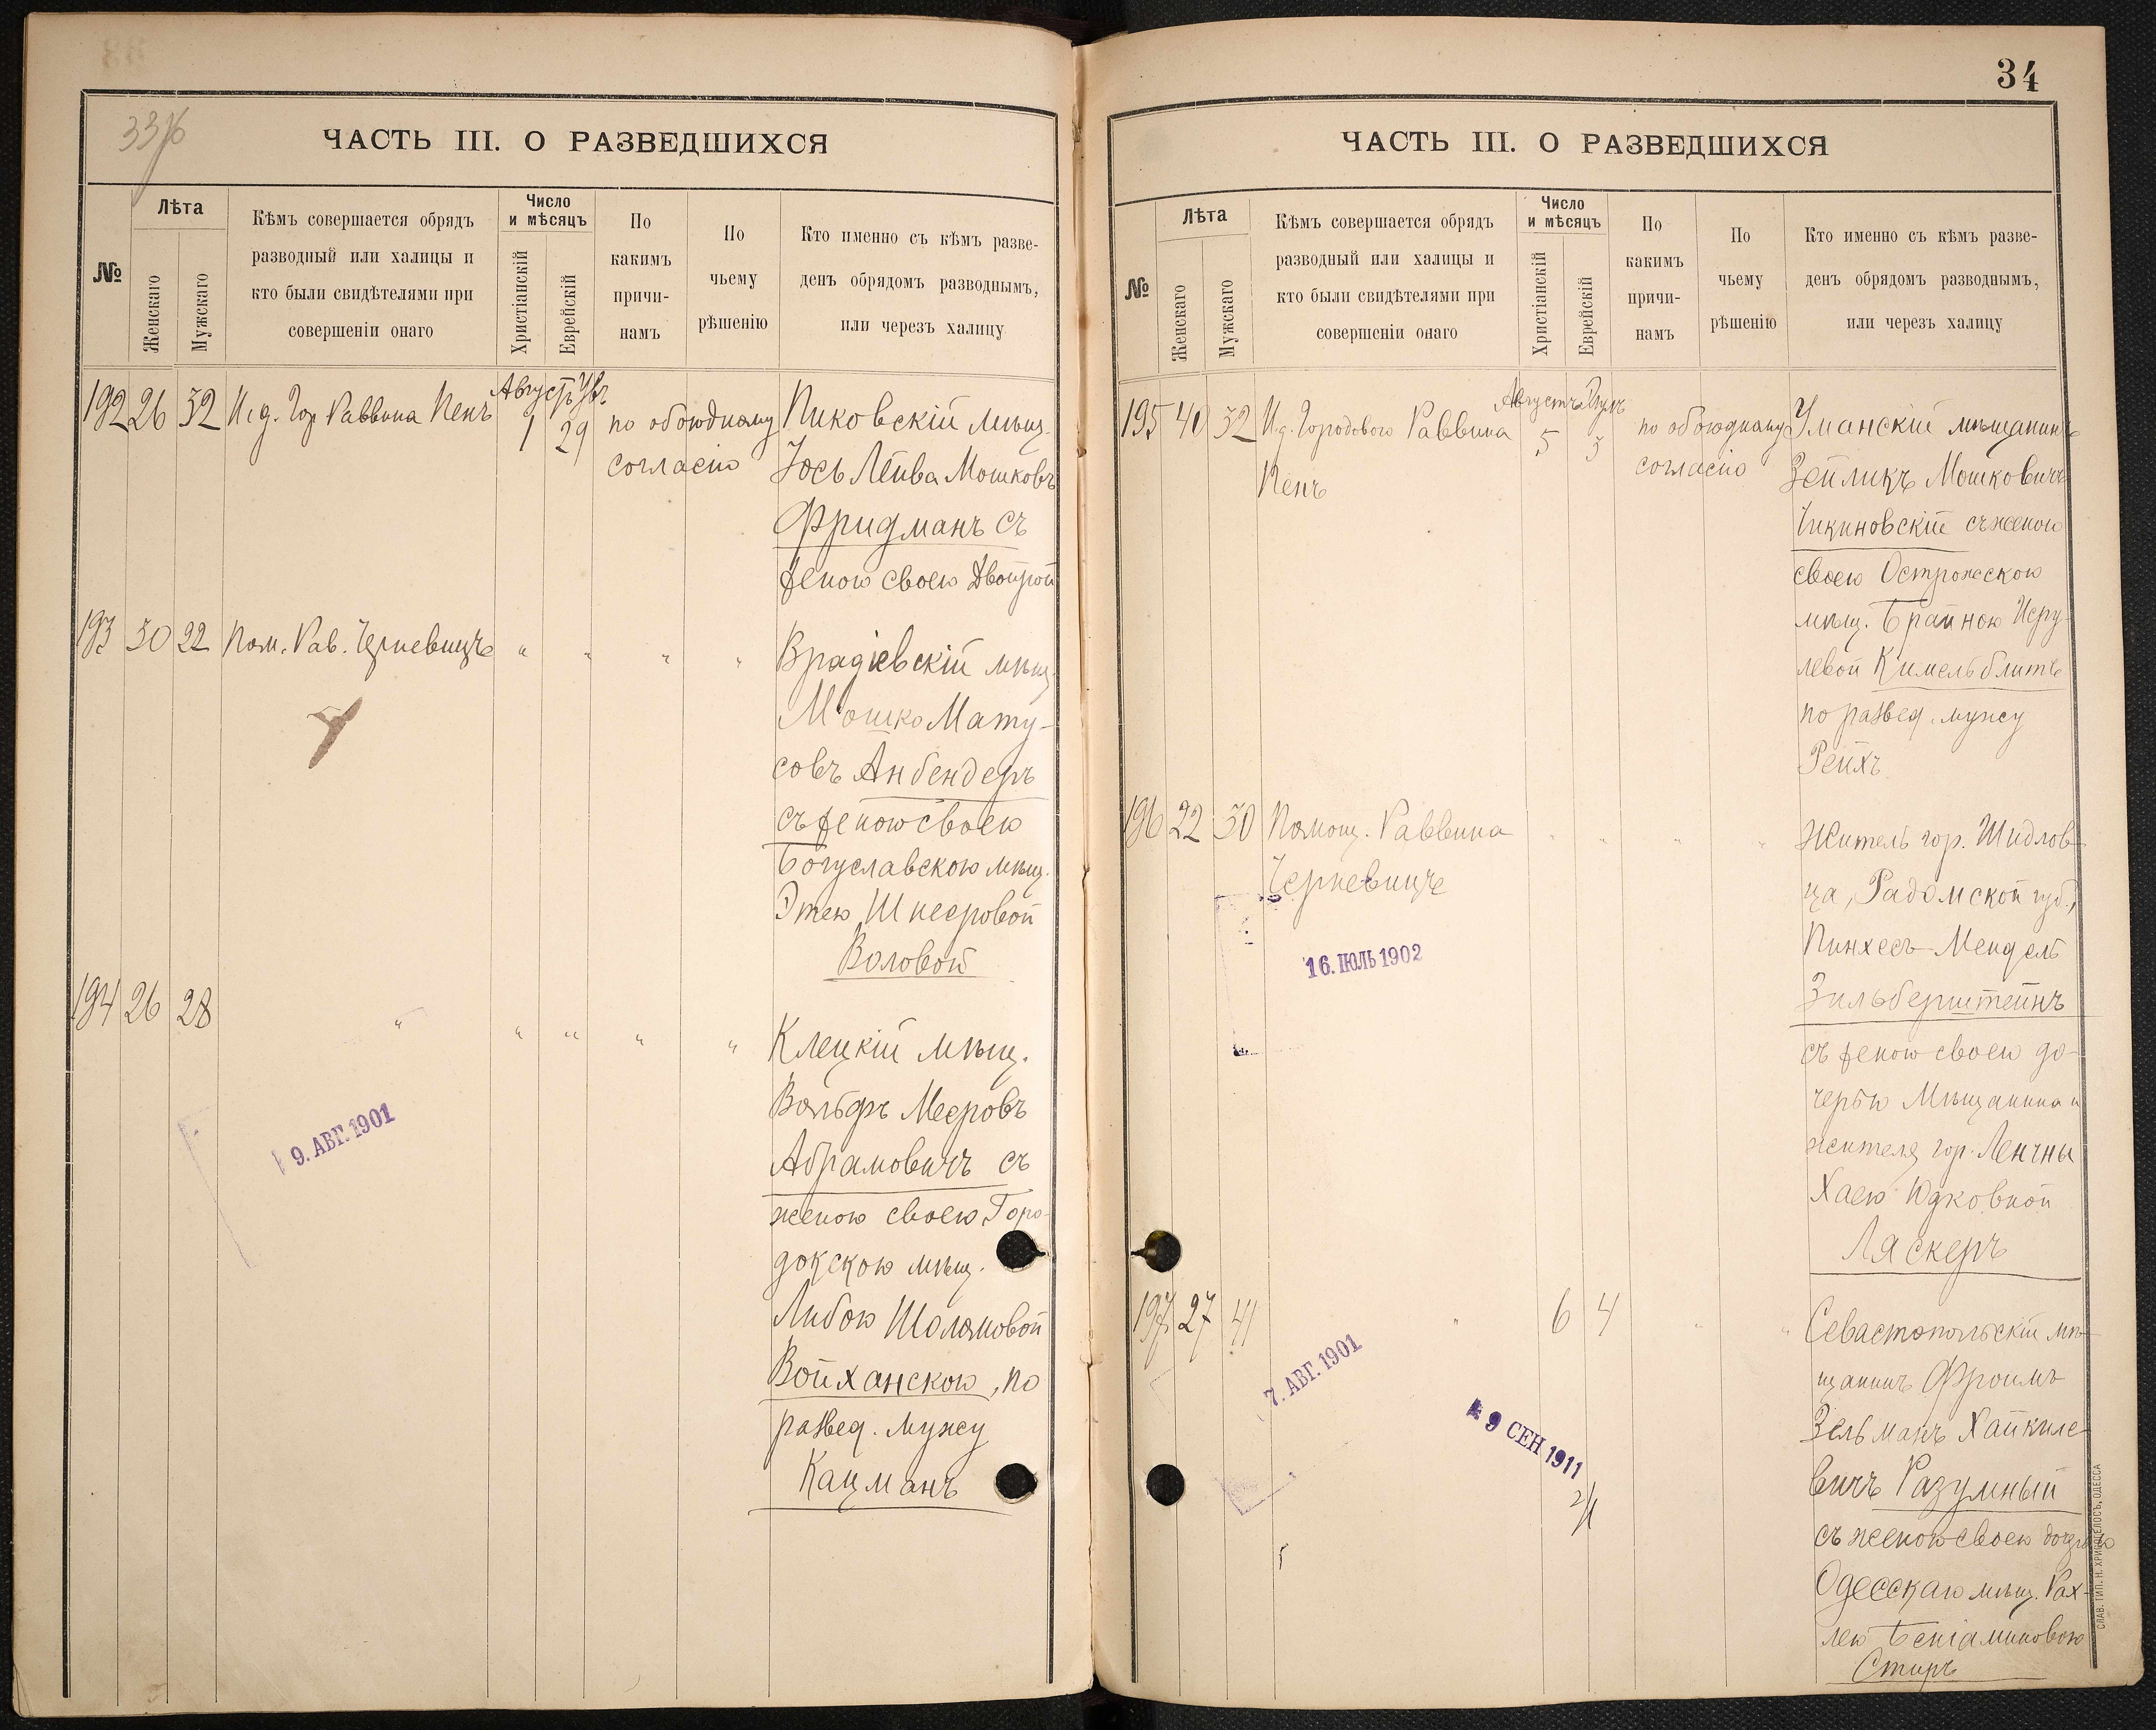 33 об
ЧАСТЬ III. О РАЗВЕДШИХСЯ
№
Лѣта
Женскаго
Мужскаго
Кѣмъ совершается обрядъ
разводный или халицы и
кто были свидѣтелями при
совершеніи онаго
Число
и мѣсяцъ
Христіанскій
Еврейскій
По
какимъ
причи-
намъ
По
чьему
рѣшенію
Кто именно съ кѣмъ разве-
денъ обрядомъ разводнымъ,
или черезъ халицу
192 26 32 И.д. Гор. Раввина Пенъ
Августъ
1 29
по обоюдному
согласію
Пиковскій мѣщ.
Іось Лейба Мошковъ
Фридманъ съ
женою своею Двойрой
193 30 22 Пом. Рав. Черневицъ " " " "
Врадіевскій мѣщ.
Мошко Мату-
совъ Анбендеръ
съ женою своею
Богуславскою мѣщ.
Этею Шнееровой
Воловой
194 26 28 " " " " "
Клецкій мѣщ.
Вольфъ Мееровъ
Абрамовичъ съ
женою своею Горо-
докскою мѣщ.
Либою Шоломовой
Войханскою, по
развед. мужу
Кацманъ
9. АВГ. 1901
34
ЧАСТЬ III. О РАЗВЕДШИХСЯ
№
Лѣта
Женскаго
Мужскаго
Кѣмъ совершается обрядъ
разводный или халицы и
кто были свидѣтелями при
совершеніи онаго
Число
и мѣсяцъ
Христіанскій
Еврейскій
По
какимъ
причи-
намъ
По
чьему
рѣшенію
Кто именно съ кѣмъ разве-
денъ обрядомъ разводнымъ,
или черезъ халицу
195 40 32 И.д. Городового Раввина
Пенъ
Августъ
5 3
по обоюдному
согласію
Уманскій мѣщанинъ
Зейликъ Мошковичъ
Чикиновскій съ женою
своею Острожскою
мѣщ. Брайною Исру-
левой Кимельблитъ
по развед. мужу
Рейхъ
196 22 30 Помощ. Раввина
Черневицъ " " " "
Житель гор. Шидлов-
ца, Радомской губ.,
Пинхесъ-Мендель
Зильберштейнъ
съ женою своею до-
черью Мѣщанина и
жителя гор. Ленчны
Хаею Юдковной
Ляскеръ
16. ІЮЛЬ 1902
197 27 41 " 6 4 " "
Севастопольскій мѣ-
щанинъ Фроимъ
Зельманъ Хайкиле-
вичъ Разумный
съ женою своею дочерью
Одесскаго мѣщ. Рах-
лею Беніаминовою
Стиръ
7. АВГ. 1901
9 СЕН 1911
СЛАВ. ТИП. Н. ХРИСОГЕЛОСЪ, ОДЕССА